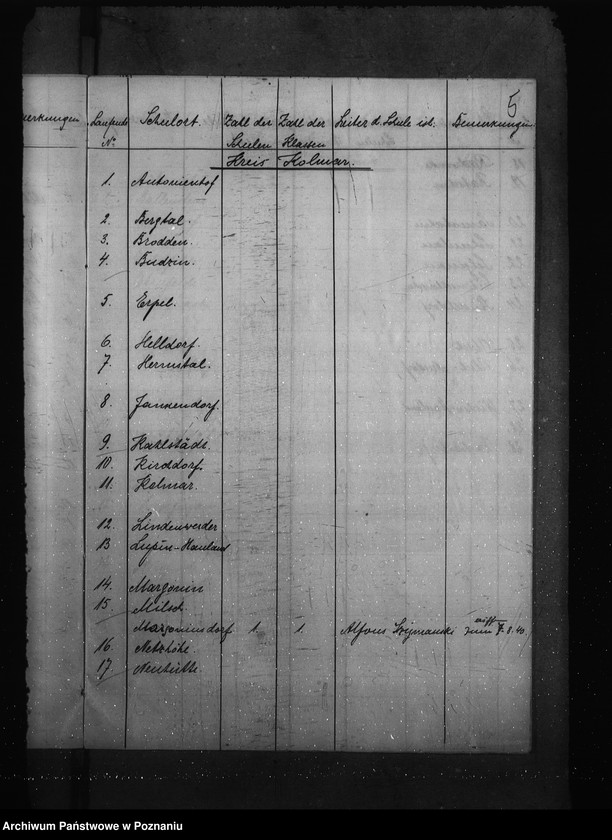 5
merkungen Laufende Schulort. Zahl der Zahl der Leiter d. Schule ist. Bemerkungen
№ Schulen Klassen
Kreis Kolmar.
1. Antonienhof
2. Bergtal.
3. Brodden.
4. Budzin.
5. Erpel.
6. Helldorf.
7. Hermstal.
8. Jankendorf.
9. Kahlstädt.
10. Kirchdorf.
11. Kolmar.
12. Lindenwerder
13 Lupin-Hauland
14. Margonin
15. Milsch
Margoninsdorf. 1 1. Alfons Szymanski zum 7.8.40.
16. Netzhöhe.
17. Neuhütte.
Archiwum Państwowe w Poznaniu